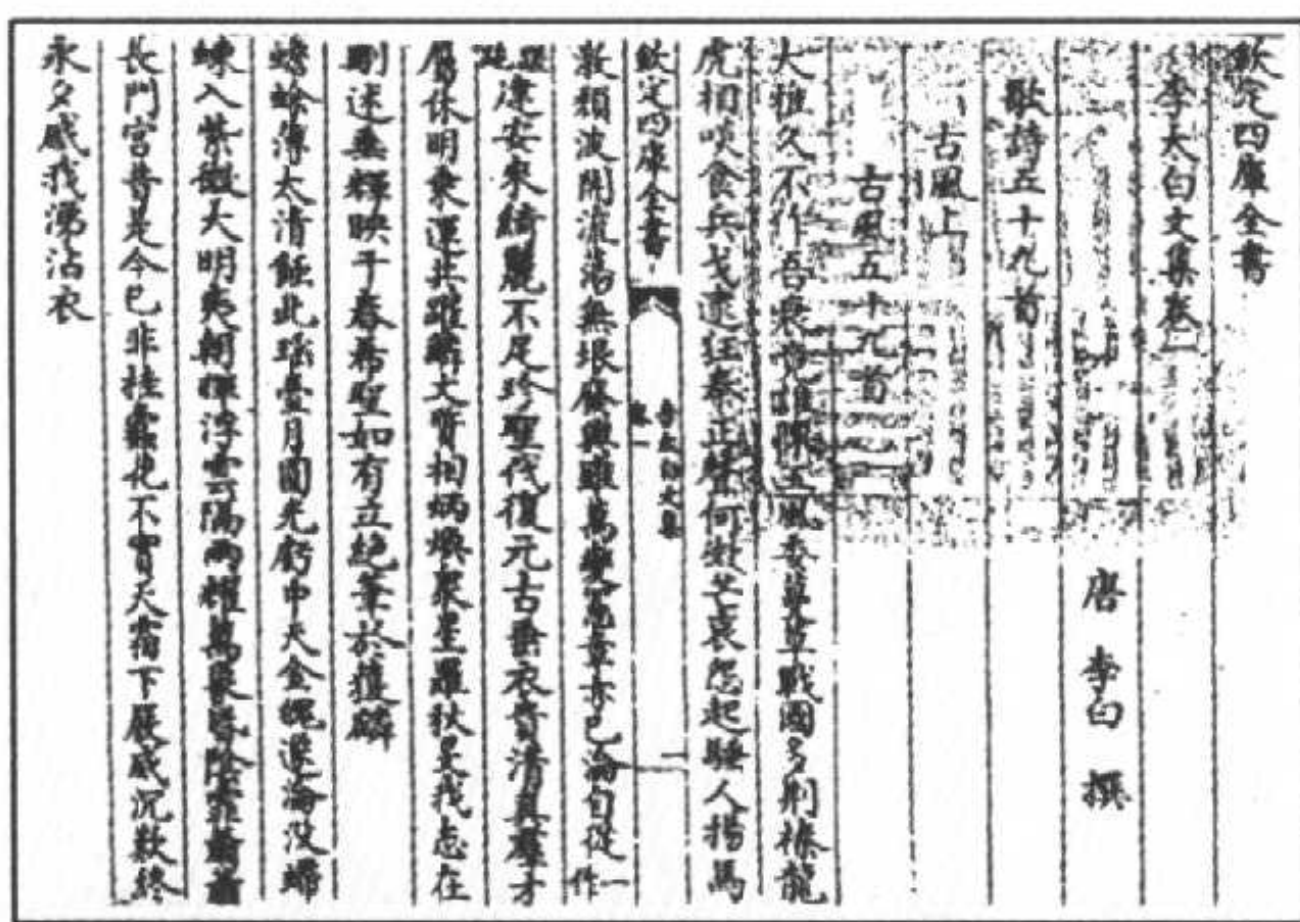 欽定四庫全書
李太白文集卷二
唐 李白 撰
歌詩五十九首
古風上
古風五十九首
大雅久不作吾衰竟誰陳王風委蔓草戰國多荆榛龍
虎相啖食兵戈逮狂秦正聲何微茫哀怨起騷人揚馬
欽定四庫全書
李太白文集
激頽波開流蕩無垠廢興雖萬變憲章亦已淪自從一作
建安來綺麗不足珍聖代復元古垂衣貴清真羣才
屬休明乗運共躍鱗文質相炳煥衆星羅秋旻我志在
刪述垂輝映千春希聖如有立絶筆於獲麟
蟾蜍薄太清蝕此瑶臺月圓光虧中天金魄遂淪沒螮
蝀入紫微大明夷朝暉浮雲隔兩耀萬象昏陰霏蕭蕭
長門宫昔是今已非桂蠹花不實天霜下嚴威沉歎終
永夕感我涕沾衣